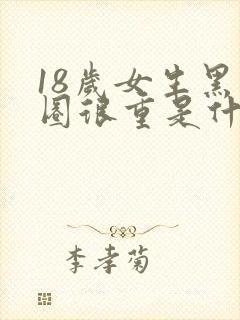 18歲女生黑
圈很重是什
李孝菊